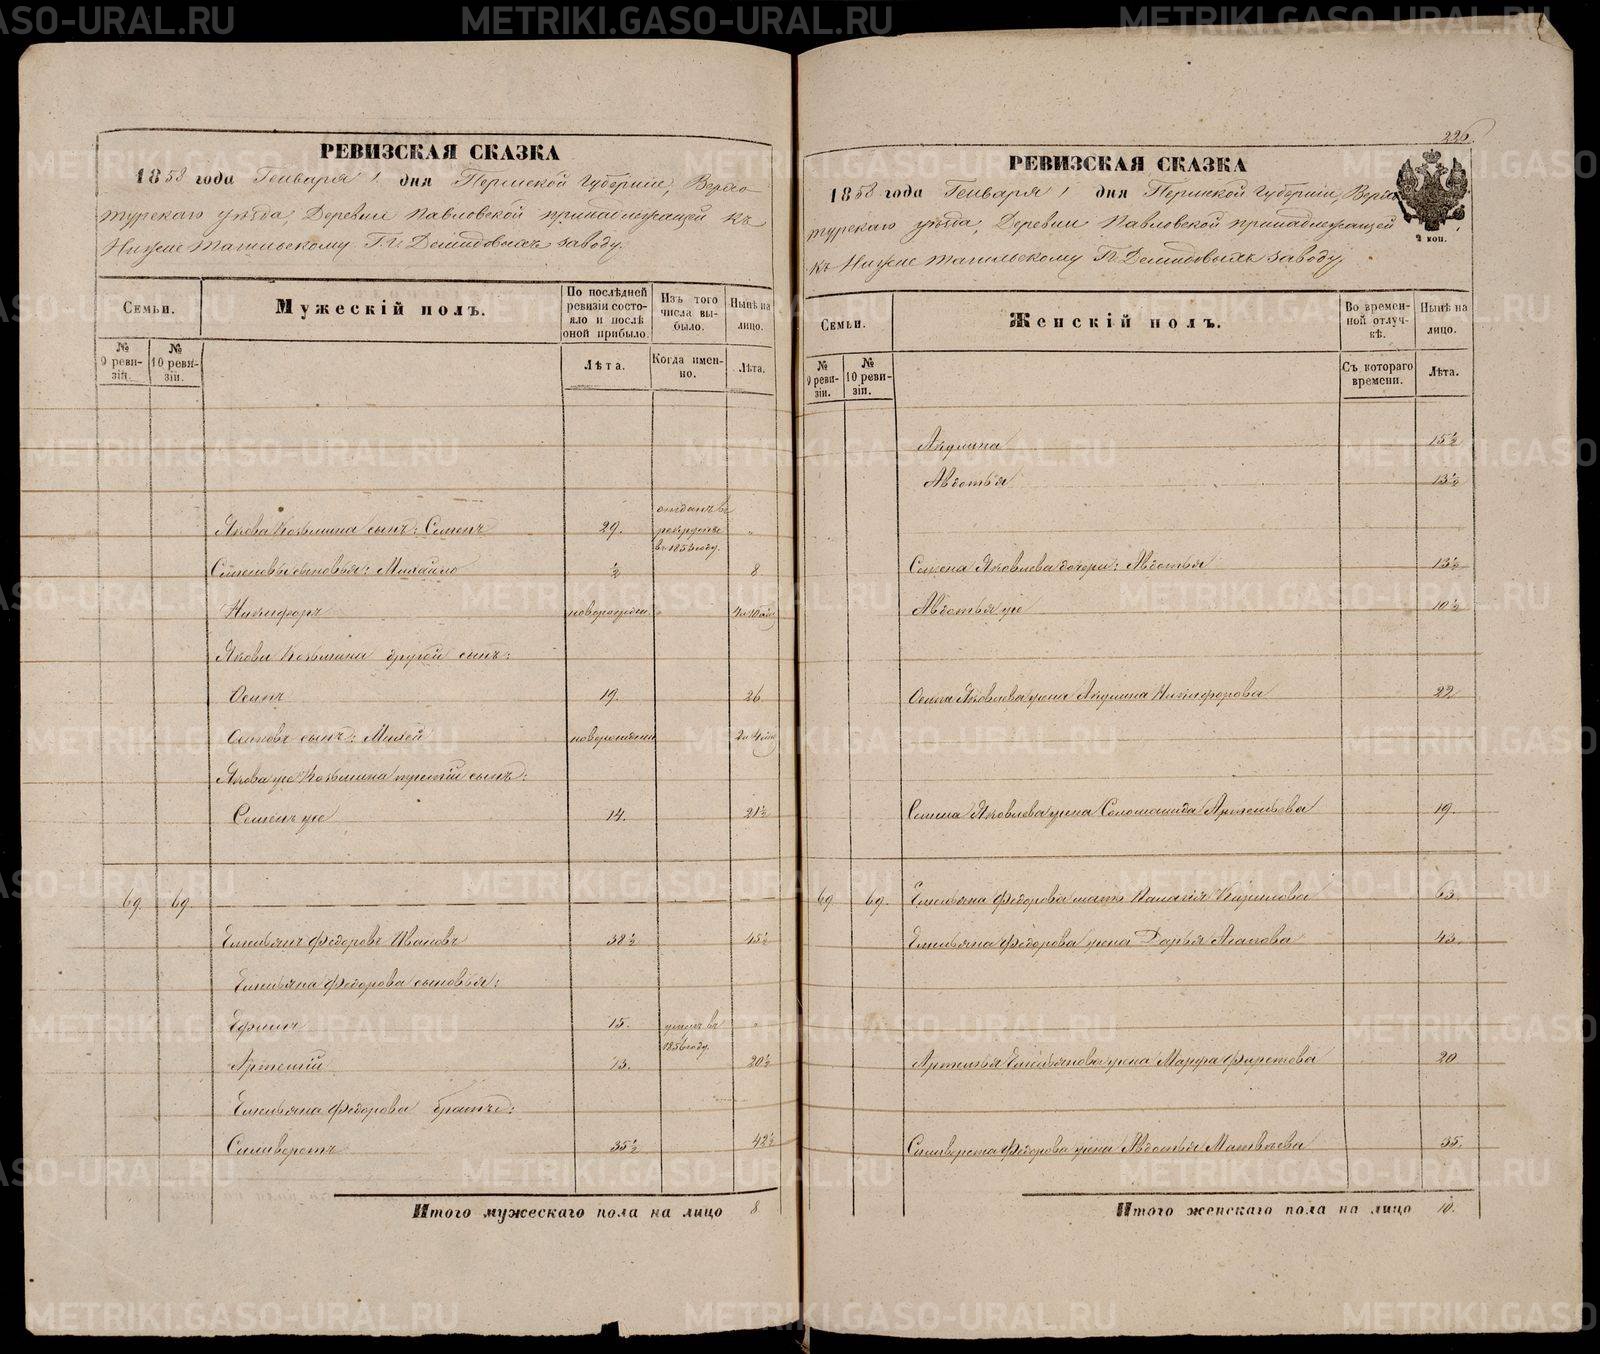 METRIKI.GASO-URAL.RU
РЕВИЗСКАЯ СКАЗКА
1858 года Генваря 1 дня Пермской Губернии, Верхо
турскаго уѣзда, Деревни Павловской принадлежащей къ
Нижне Тагильскому Г.г. Демидовыхъ заводу.
Семьи.
Мужескій полъ.
По послѣдней ревизіи состояло и послѣ оной прибыло.
Изъ того числа выбыло.
Нынѣ на лицо.
№ 9 ревизіи.
№ 10 ревизіи.
Лѣта.
Когда именно.
Лѣта.
Якова Козьмина сынъ: Семенъ 29. отданъ въ рекруты въ 1853 году. "
Семеновы сыновья: Михайло ½ 8
Никифоръ новорожден. " 4 и 10 мѣс.
Якова Козьмина другой сынъ:
Осипъ 19. 26
Осиповъ сынъ: новорожденн 2 и 4 мѣс.
Якова же Козьмина третій сынъ:
Семенъ же 14. 21½
69. 69.
Емельянъ Федоровъ Ивановъ 38½ 45½
Емельяна Федорова сыновья:
Ефимъ 15. умеръ въ 1856 году. "
Артемій 13. 20½
Емельяна Федорова братъ:
Саливерстъ 35½ 42½
Итого мужескаго пола на лицо 8
226.
РЕВИЗСКАЯ СКАЗКА
1858 года Генваря 1 дня Пермской Губернии, Верхо
турскаго уѣзда, Деревни Павловской принадлежащей
къ Нижне Тагильскому Гг. Демидовыхъ заводу,
2 коп.
Семьи.
Женскій полъ.
Во временной отлучкѣ.
Нынѣ на лицо.
№ 9 ревизіи.
№ 10 ревизіи.
Съ котораго времени.
Лѣта.
Акулина 15½
Авдотья 13½
Семена Яковлева дочери: Авдотья 13½
Авдотья же 10½
Осипа Яковлева жена Акулина Никифорова 22
Семена Яковлева жена Соломонида Артемьева 19.
69 69. Емельяна Федорова мать Наталья Кирилова 63.
Емельяна Федорова жена Дарья Агапова 43.
Артемья Емельянова жена Марфа 20
Саливерста Федорова жена Авдотья Матвѣева 35.
Итого женскаго пола на лицо 10.